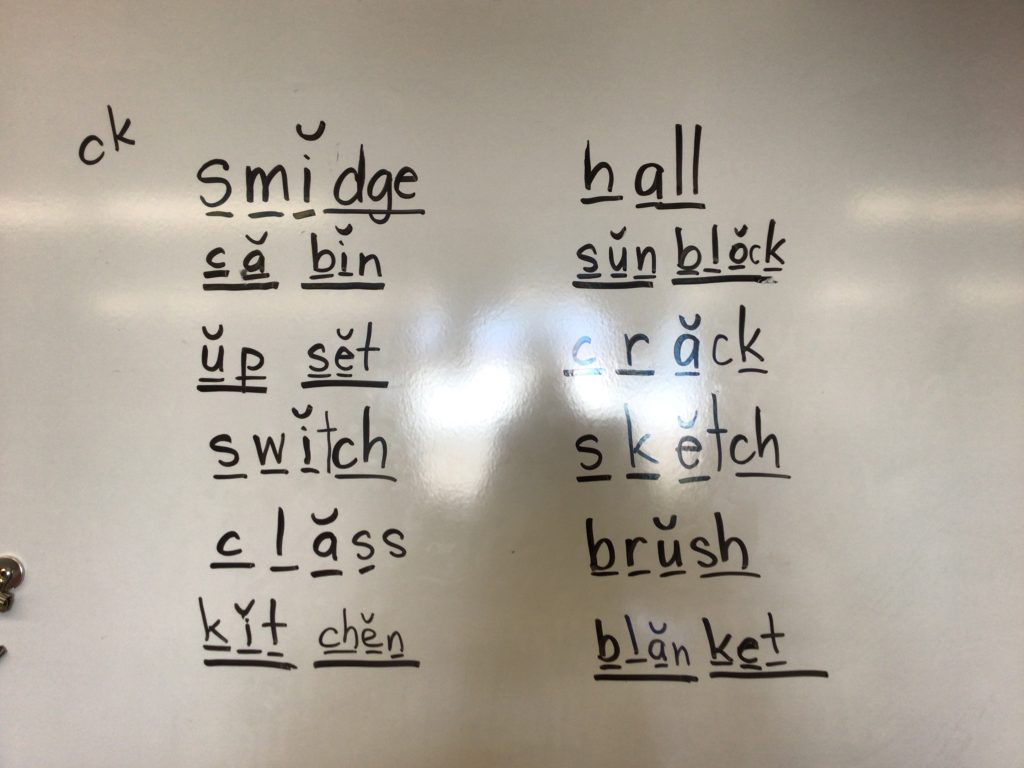 ck
smĭdge
că bĭn
ŭp sĕt
swĭtch
clăss
kĭt chĕn
hall
sŭn blŏck
crăck
skĕtch
brŭsh
blăn ket